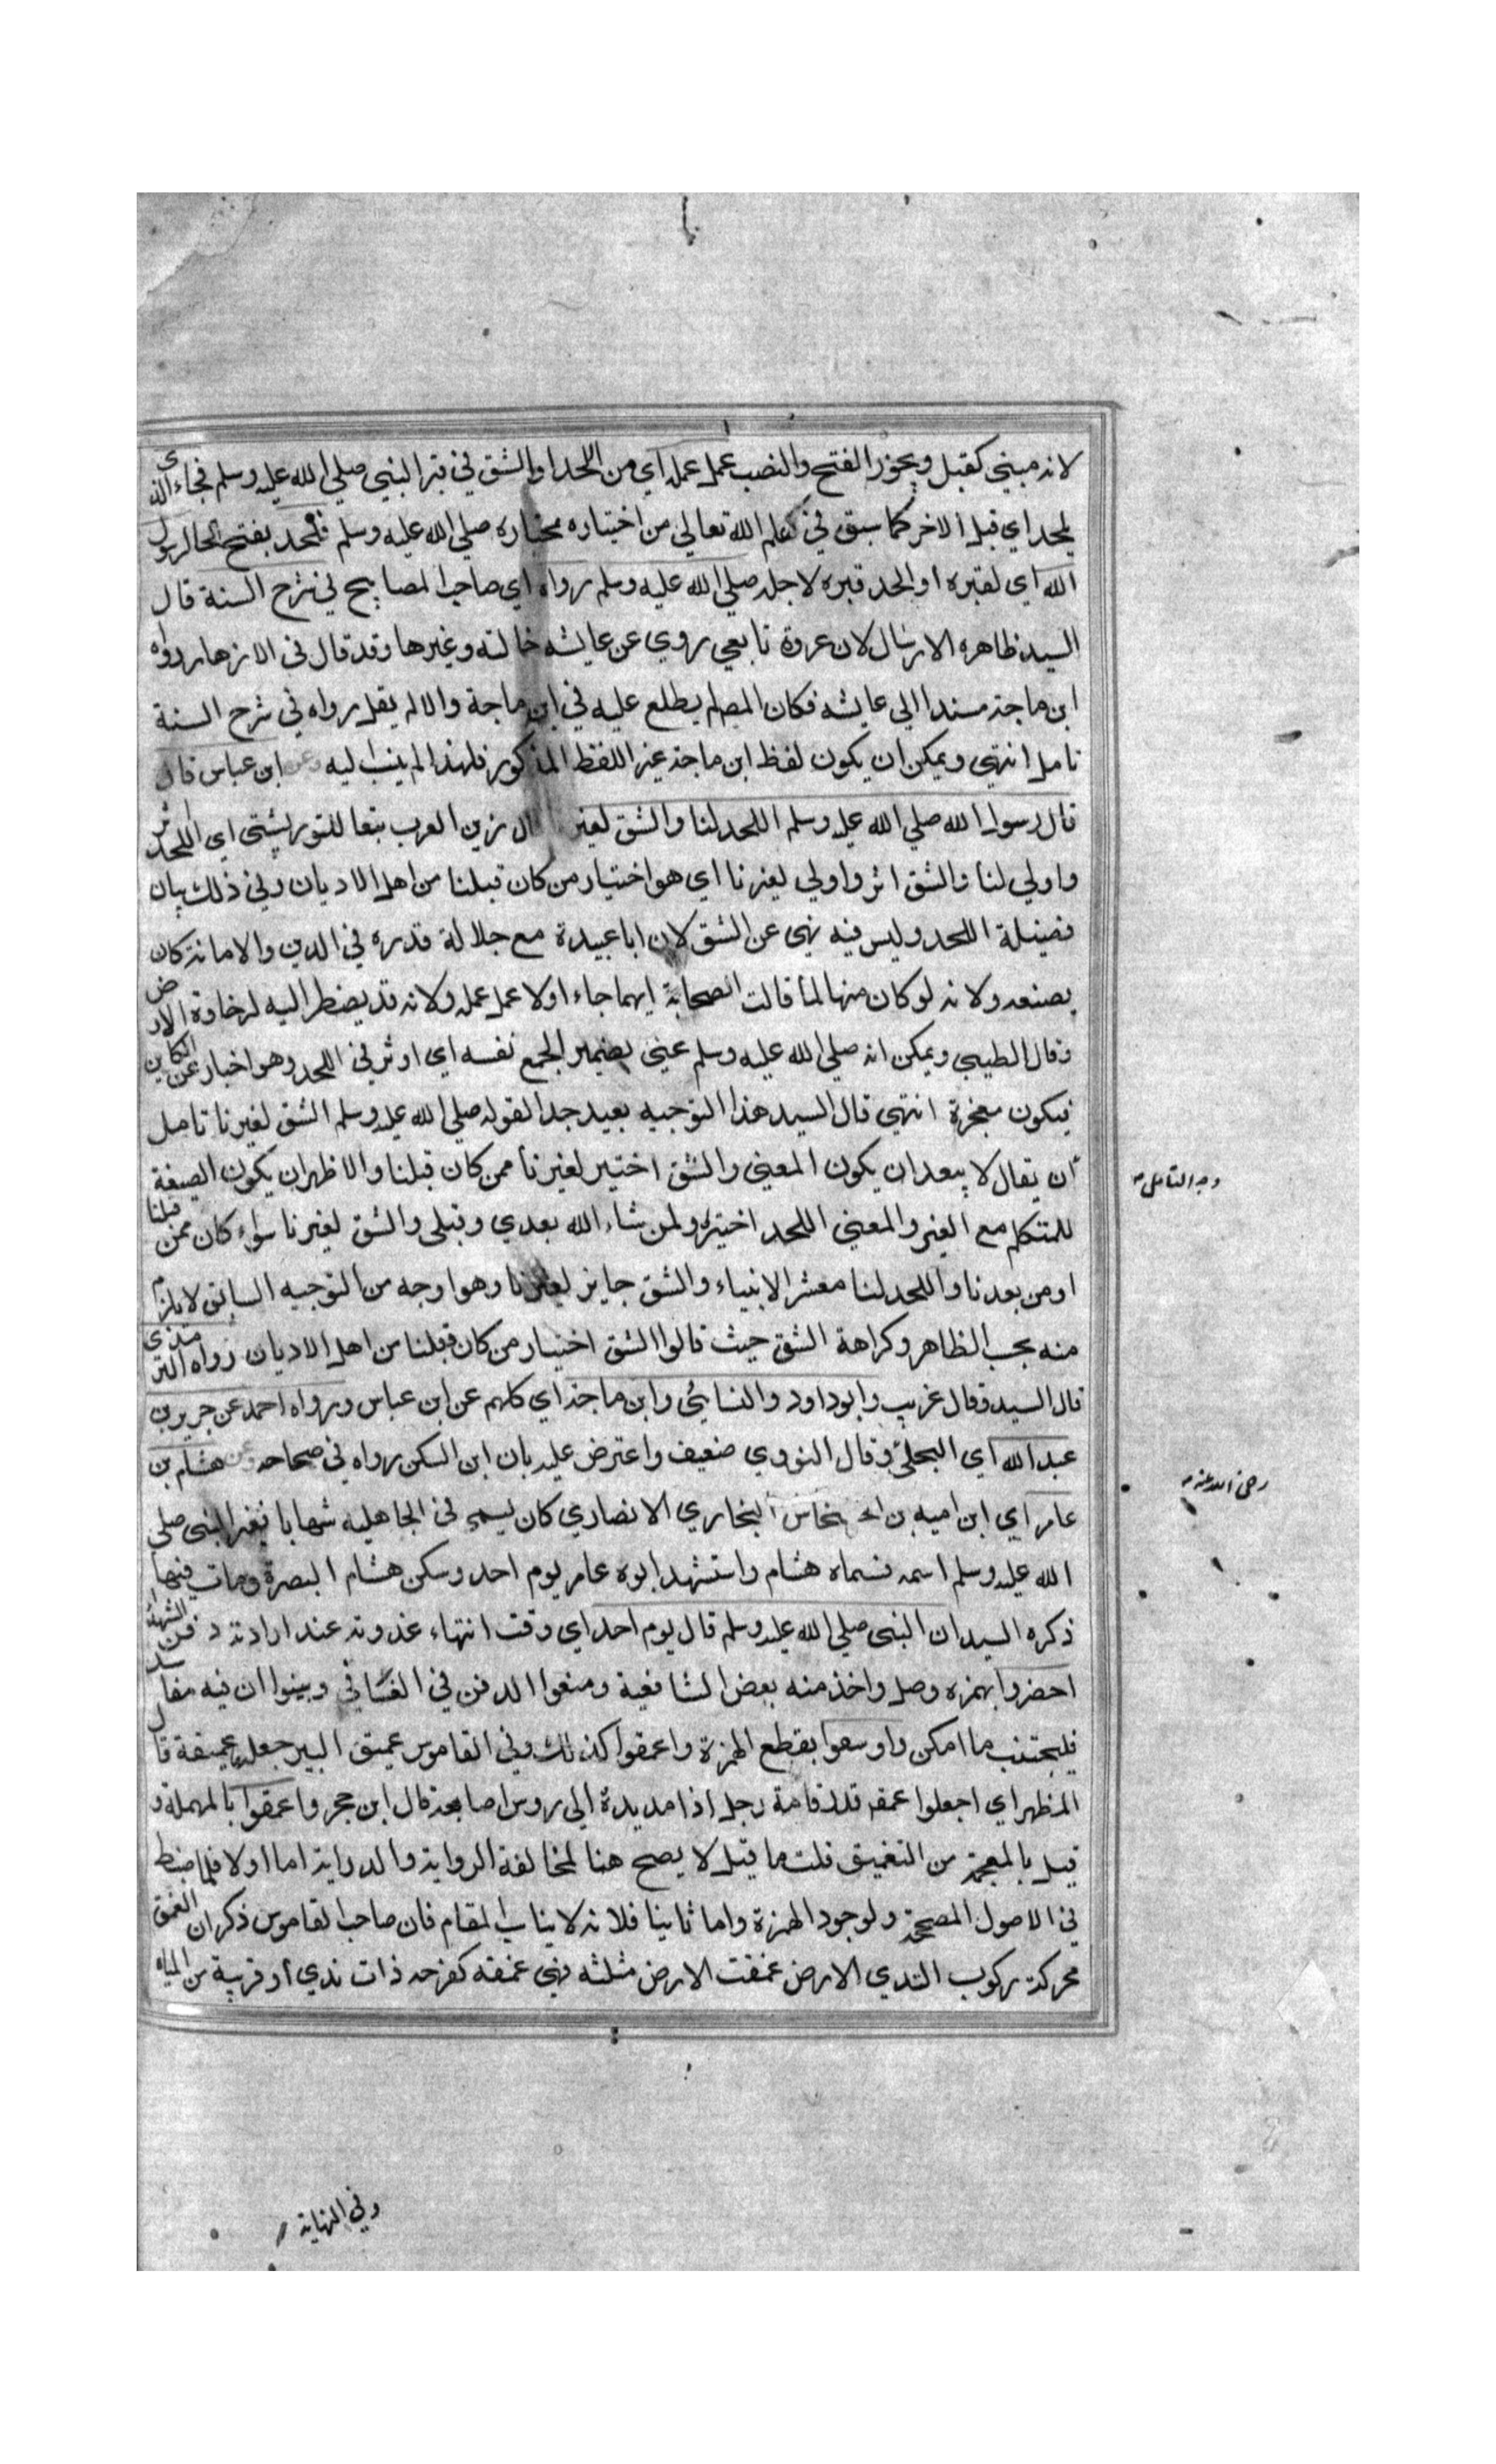 لانه مبني كقبل ويجوز الفتح والنصب عمل عمله اي من اللحد او الشق في قبر النبي صلي الله عليه وسلم فجاء الذي
يلحد اي قبل الاخر كما سبق في علم الله تعالي من اختياره مختاره صلي الله عليه وسلم فلحد بفتح الحا لرسول
الله اي لقبره او الحد قبره لاجله صلي الله عليه وسلم رواه اي صاحب المصابيح في شرح السنة قال
السيد ظاهره الارسال لان عروة تابعي روي عن عايشه خالته وغيرها وقد قال في الازهار رواه
ابن ماجة مسندا الي عايشه فكان المص لم يطلع عليه في ابن ماجة والا لم يقل رواه في شرح السنة
تامل انتهي ويمكن ان يكون لفظ ابن ماجة غير اللفظ المذكور فلهذا لم ينسب اليه وعن ابن عباس قال
قال رسول الله صلي الله عليه وسلم اللحد لنا والشق لغير ال زين العرب تبعا للتوربشتي اي اللحد اثر
واولي لنا والشق اثر واولي لغيرنا اي هو اختيار من كان قبلنا من اهل الاديان وفي ذلك بيان
فضيلة اللحد وليس فيه نهي عن الشق لان ابا عبيدة مع جلالة قدره في الدين والامانة كان
يصنعه ولانه لو كان منهيا لما قالت الصحابة ايهما جاء اولا عمل عمله ولانه قد يضطر اليه لرخاوة الارض
وقال الطيبي ويمكن انه صلي الله عليه وسلم عني بضمير الجمع نفسه اي اوثر في اللحد وهو اخبار عن الكاين
فيكون معجزة انتهي قال السيد هذا التوجيه بعيد جدا لقوله صلي الله عليه وسلم الشق لغيرنا تامل
ان يقال لا يبعد ان يكون المعني والشق اختير لغيرنا ممن كان قبلنا والاظهر ان يكون الصيغة
وجه التامل
للمتكلم مع الغير والمعني اللحد اختيره ولمن شاء الله بعدي وقبلي والشق لغيرنا سواء كان ممن قبلنا
او من بعدنا واللحد لنا معشر الانبياء والشق جايز لغيرنا وهو اوجه من التوجيه السابق لا يلزم
منه بحسب الظاهر وكراهة الشق حيث قالوا الشق اختيار من كان قبلنا من اهل الاديان رواه الترمذي
قال السيد وقال غريب وابو داود والنسايئ وابن ماجة اي كلهم عن ابن عباس ورواه احمد عن جرير بن
عبد الله اي البجلي وقال النووي ضعيف واعترض عليه بان ابن السكن رواه في صحاحه وعن هشام بن
رضي الله عنه
عامر اي ابن اميه بن الخشخاش النجاري الانصاري كان يسمي في الجاهليه شهابا فغير النبي صلي
الله عليه وسلم اسمه فسماه هشام واستشهد ابوه عامر يوم احد وسكن هشام البصرة ومات فيها
ذكره السيد ان النبي صلي الله عليه وسلم قال يوم احد اي وقت انتهاء غزوته عند ارادته دفن الشهداء
احضروا بهمزه وصل واخذ منه بعض الشافعية ومنعوا الدفن في الفساقي وبينوا ان فيه مفاسد
فليجتنب ما امكن واوسعوا بقطع الهمزة واعمقوا كذلك وفي القاموس عميق البير جعلها عميقة قال
المظهر اي اجعلوا عمقه قدر قامة رجل اذا مد يده الي روس اصابعه قال ابن حجر واعمقوا بالمهملة و
قيل بالمعجمة من التغميق قلت ما قيل لا يصح هنا لمخالفة الرواية والدراية اما اولا فلما ضبط
في الاصول المصححة ولوجود الهمزة واما ثانيا فلانه لا يناسب المقام فان صاحب القاموس ذكر ان الغمق
محركة ركوب الندي الارض غمقت الارض مثلثه فهي غمقه كفرحه ذات ندي او قريبة من المياه
وفي النهاية